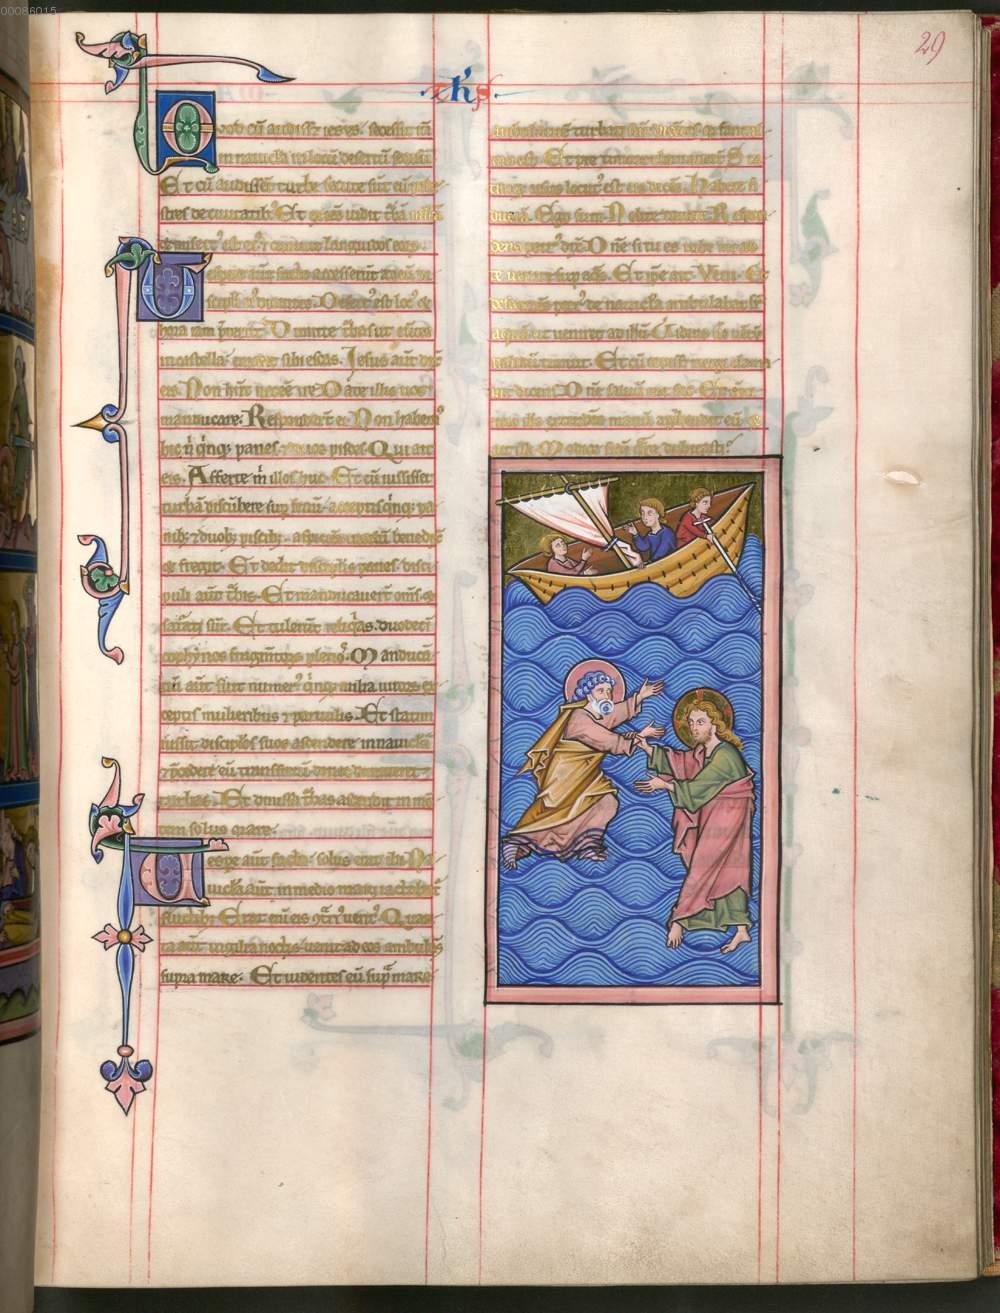 00086015
29
ih's
Quod cū audisset iesus. secessit in
de in nauicla in locū desertū seorsū
Et cū audissēt turbe secute sūt eū pede
stres de ciuitatib' Et exiēs uidit t'bā
et misert' est eis 7 curauit languidos eorū.
Uespere aūt facto accesserūt ad eū di
scipli ei' dicentes. Desert' est loc' &
hora iam p̄teriit. Dimitte t'bas ut eūtes
in castella emāt sibi escas. Jesus aūt dix'
eis. Non hn̄t necesse ire Date illis uos
manducare. Respondert ei Non habem'
hic n̄ q'nq; panes. 7 duos pisces. Qui ait
eis. Afferte m̄ illos huc. Et cū iussisset
turbā discūbere sup fenū. acceptis q'nq; pa
nib; & duob; piscib; aspiciēs in celū bened
& fregit. Et dedit discipulis panes. disci
puli aūt t'bis. Et māducauert om̄s. &
saturati sūt. Et tulerūt reliq'as. duodeci
cophynos fragm̄torū plenos. Manducā
tiū aūt fuit numer' q'nq; milia uirorū ex
ceptis mulieribus 7 paruulis. Et statim
iussit discip'los suos ascendere in nauiclā
7 p̄cedere eū trans fretū donec dimitteret
turbas. Et dimissa t'bas ascendit in mō
tem solus orare.
Uespe aūt facto. solus erat ibi. Na
uicla aūt in medio mari iactabat'
fluctib; Erat enī eis 9tri' uent' Quar
ta aūt uigilia noctis. uenit ad eos ambulās
supra mare. Et uidentes eū sup mare
ambulantē turbati sūt dicētes q' fantas
ma est. Et pre timore clamauert Sta
timq; iesus locut' est eis dicēs. Habete fi
duciā. Ego sum. Nolite timere Respon
dens petr' dix' Dn̄e si tu es iube me ad
te uenire sup aq's. Et ip̄e ait. Veni. Et
descendēs petr' de nauicla ambulabat sr
aquā ut ueniret ad ihm̄ Uidens uo uētū
ualidū timuit. Et cū cepisset mergi clama
uit dicens Dn̄e saluū me fac. Et cōti
nuo ihs extendēs manū apphendit eū. &
ait illi. Modice fidei quare dubitasti?